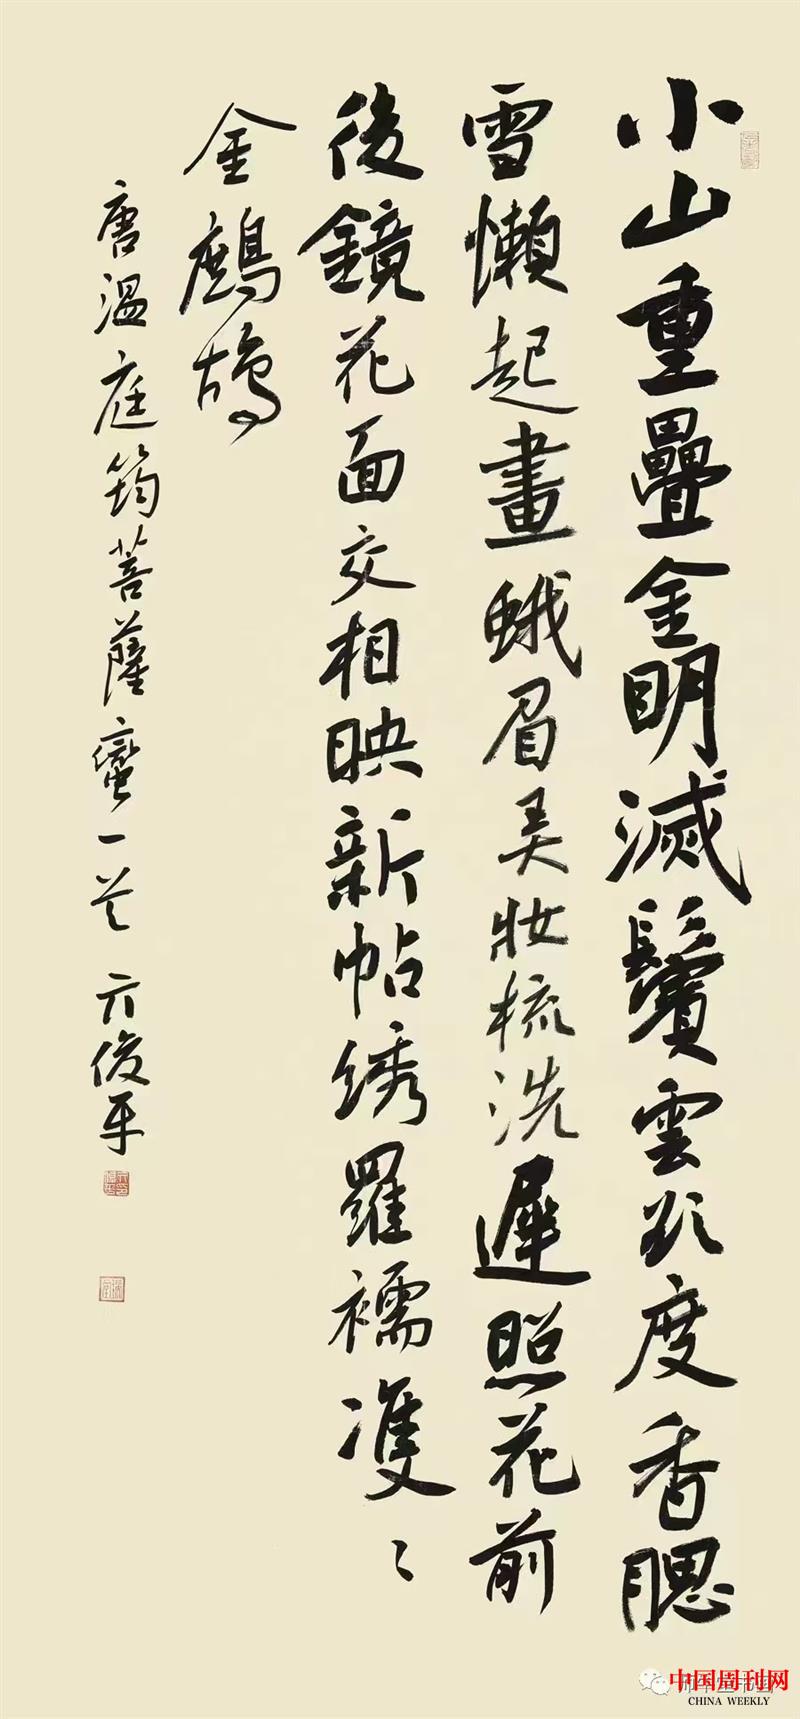 小山重疊金明滅鬢雲欲度香腮
雪懶起畫蛾眉弄妝梳洗遲照花前
後鏡花面交相映新帖绣羅襦雙〻
金鷓鴣
唐溫庭筠菩薩蠻一首 亓俊平
中国周刊网
CHINA WEEKLY